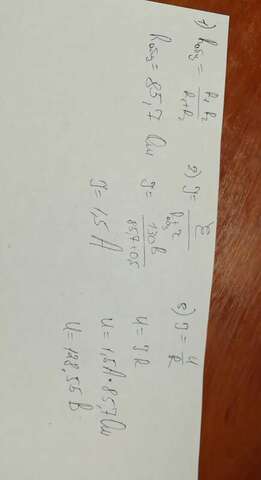 1) Rобщ = R₁R₂ / R₁+R₂
Rобщ = 85,7 Ом
2) I = Ɛ / Rобщ+r
I = 130В / 85,7+0,5
I = 1,5 А
3) I = U / R
U = IR
U = 1,5А·85,7Ом
U = 128,55 В